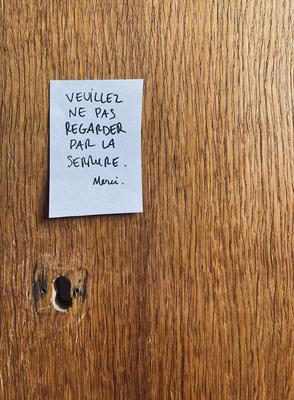 VEUILLEZ
NE PAS
REGARDER
PAR LA
SERRURE.
Merci.